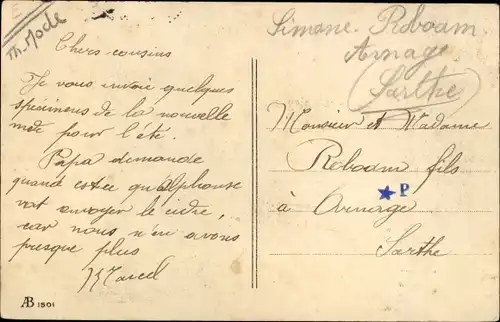 Th. Mode
Chers cousins
Je vous envoie quelques
spécimens de la nouvelle
mode pour l'été.
Papa demande
quand est ce qu'Alphonse
vat envoyer le cidre,
car nous n'en avons
presque plus
Marcel
AB 1501
Simone Reboam
Arnage
Sarthe
Monsieur et Madame
Reboam fils
P
à Arnage
Sarthe